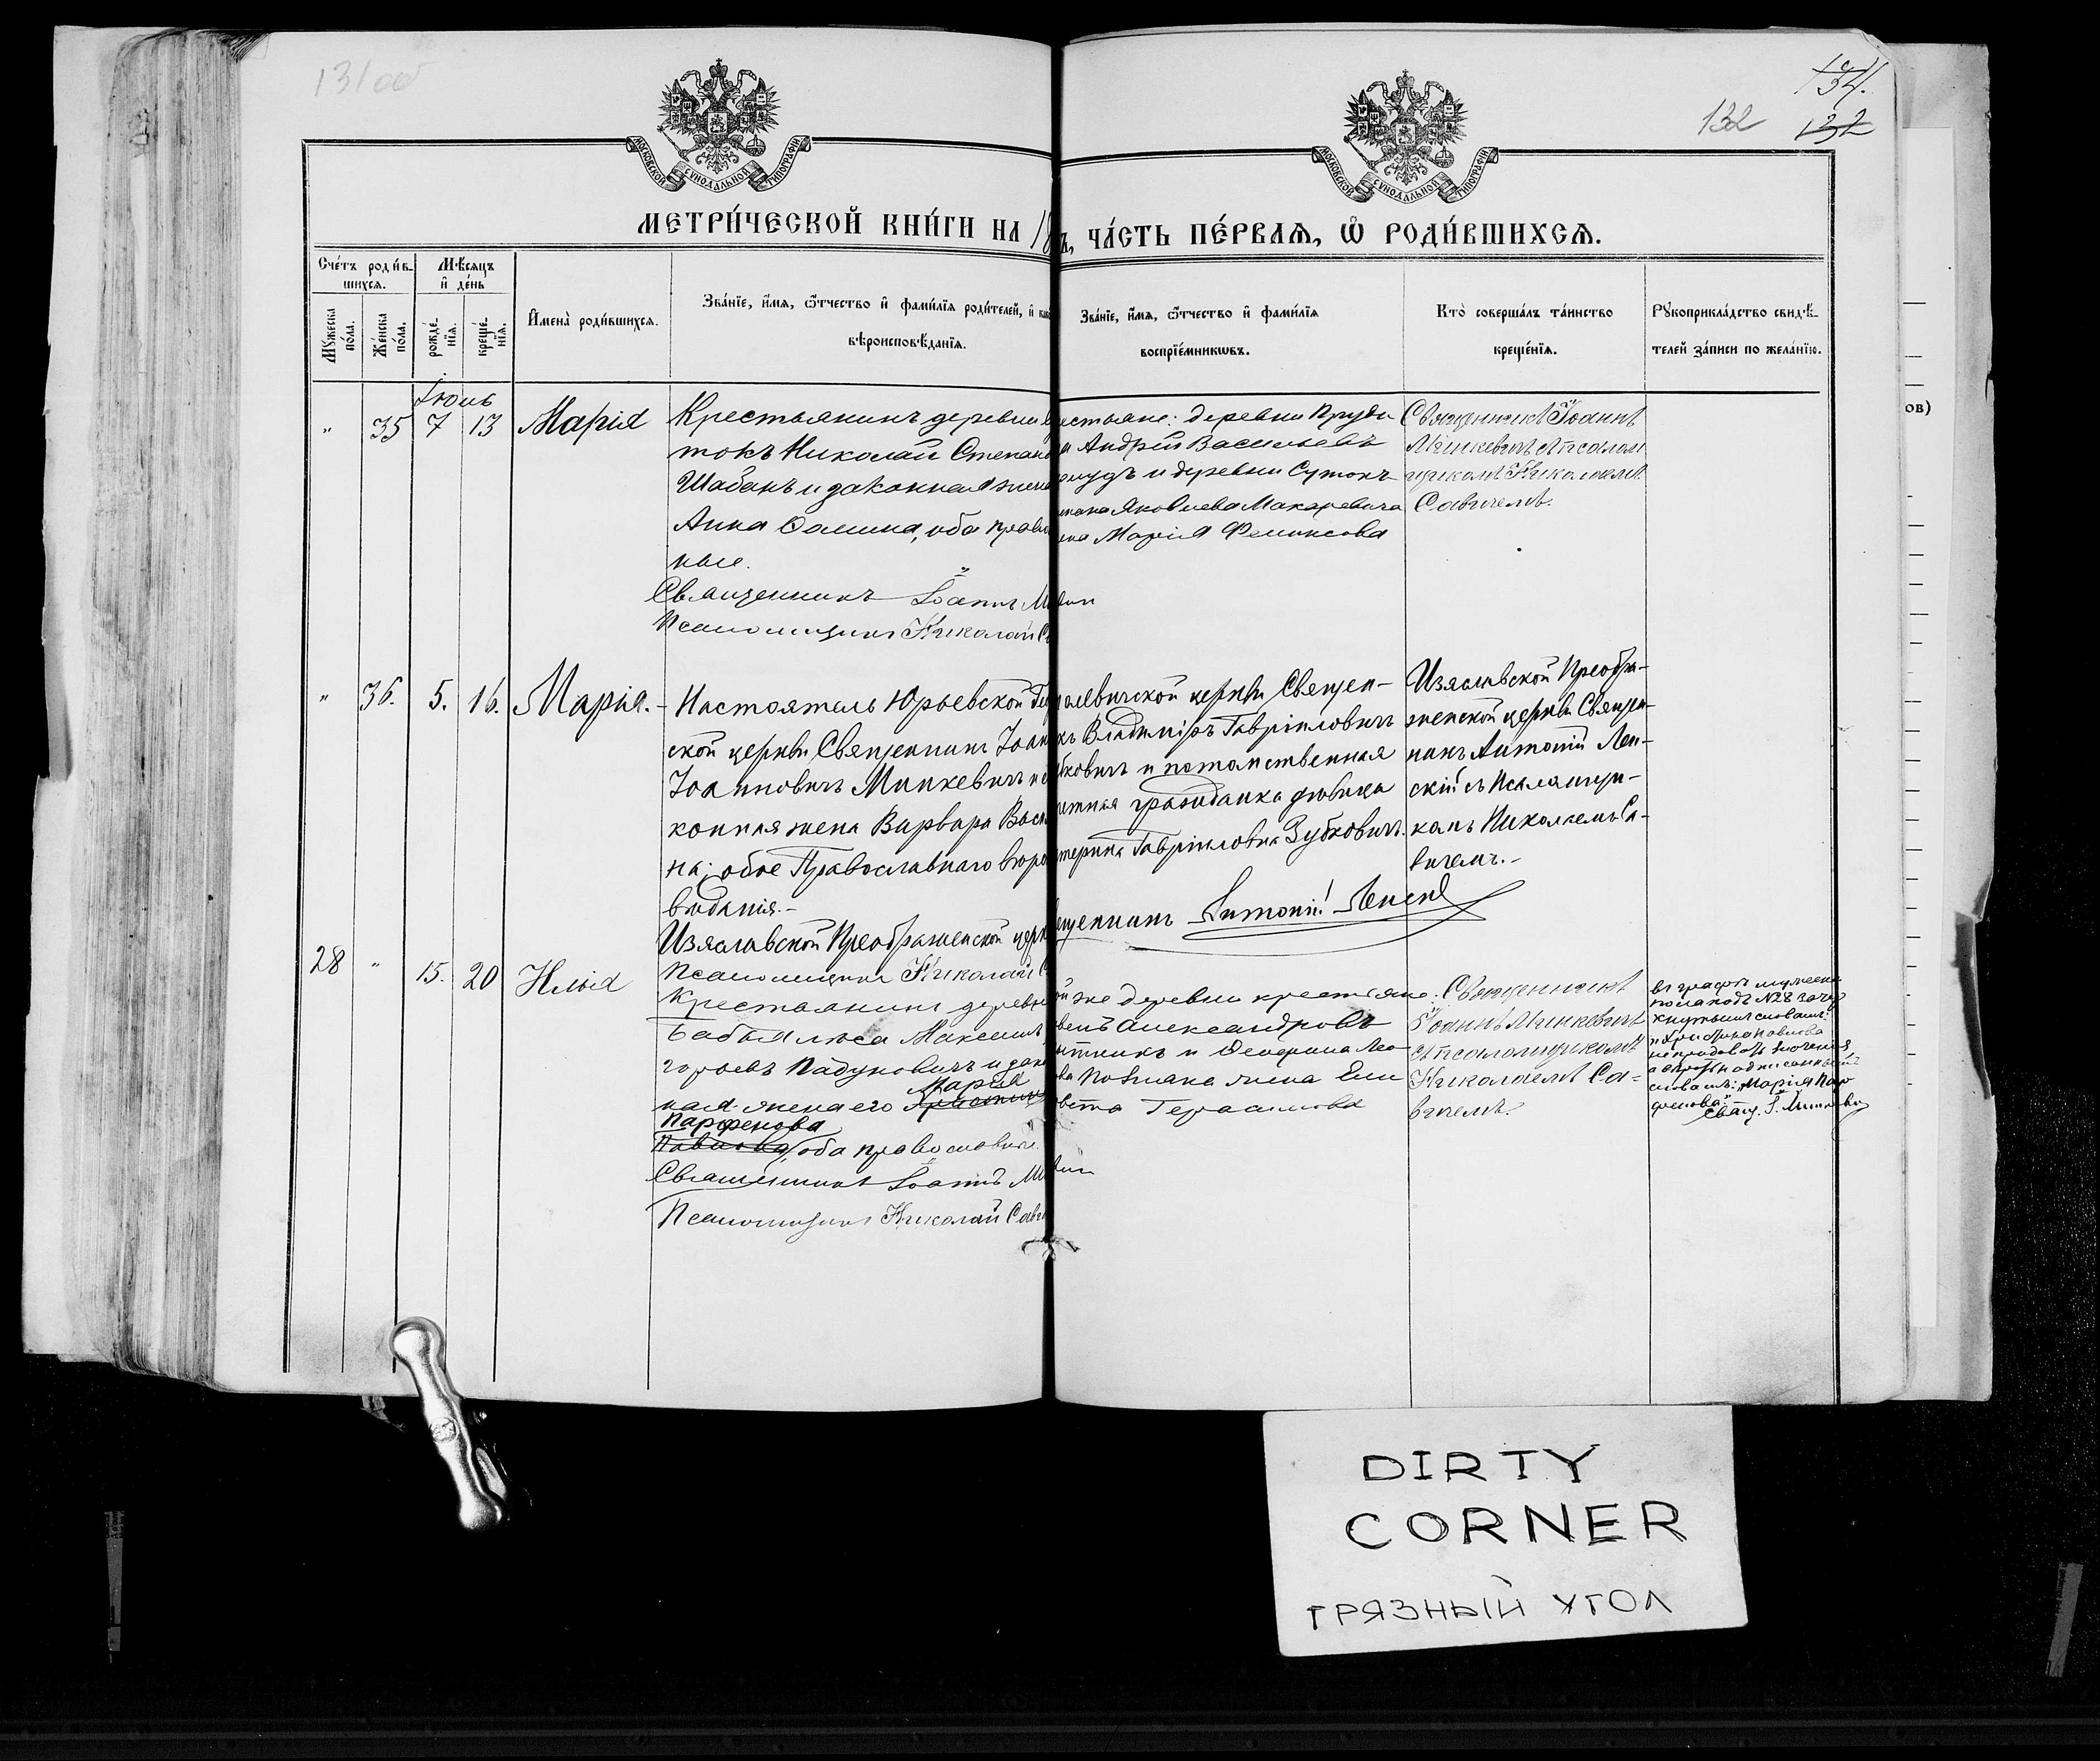 131об
134.
132
132
МОСКОВСКОЙ СѴНОДАЛЬНОЙ ТИПОГРАФІИ
МОСКОВСКОЙ СѴНОДАЛЬНОЙ ТИПОГРАФІИ
МЕТРИ́ЧЕСКОЙ КНИ́ГИ НА 18
ъ, ЧА́СТЬ ПЕ́РВАѦ, Ѡ РОДИ́ВШИХСѦ.
Сче́тъ роди́в-
шихсѧ.
Мѣ́сѧцъ
и де́нь
Мꙋ́жеска
по́ла.
Же́нска
по́ла.
рожде́-
нїѧ.
креще́-
нїѧ.
И҆мена̀ роди́вшихсѧ.
Зва́нїе, и҆́мѧ, ѻ҆́тчество и҆ фами́лїѧ роди́телей, и҆ како
вѣроисповѣ́данїѧ.
Зва́нїе, и҆́мѧ, ѻ҆́тчество и҆ фами́лїѧ
воспрїе́мникѡвъ.
Кто̀ соверша́лъ та́инство
креще́нїѧ.
Рꙋкоприкла́дство свидѣ́-
телей за́писи по жела́нїю.
Іюнь
" 35 7 13 Марія
Крестьянинъ деревни
токъ Николай Степано
Шабанъ и законная жена
Анна Ѳомина, оба право
ные.
Священникъ Іоаннъ М
Псаломщикъ Николай С
естьяне: деревни Пруди
Андрей Васильевъ
и деревни Сутокъ
Яковлева Макаревича
Марія Феликсова
Священникъ Іоаннъ
Минкевичъ съ псалом
щикомъ Николаемъ
Савичемъ.
" 36. 5. 16. Марія.
Настоятель Юрьевской Ге
ской церкви Священникъ Іоан
Іоанновичъ Минкевичъ и
конная жена Варвара Васи
на; обое Православнаго вѣро
вѣданія.-
Изяславской Преображенской церк
Псаломщикъ Николай С
левичской церкви Священ-
къ Владиміръ Гавріиловичъ
бковичъ и потомственная
етная гражданка дѣвица
терина Гавріиловна Зубковичъ.
ященникъ Антоній Ленскій
Изяславской Преобра-
женской церкви Священ-
никъ Антоній Лен-
скій съ Псаломщи-
комъ Николаемъ Са-
вичемъ.-
28 " 15. 20 Илья
Крестьянинъ деревн
Бабья лѣса Максимъ
горьевъ Падуковичъ и зако
Марія
ная жена его Христина
Парфенова
Павлова, оба православные.
Священникъ Іоаннъ М
Псаломщикъ Николай Сави
же деревни крестьяне:
Александровъ
и
жена Ели
вета Герасимова
Священникъ
Іоаннъ Минкевичъ
съ псаломщикомъ
Николаемъ Са-
вичемъ.
въ графѣ мужеска
пола подъ №28 зачер
кнутымъ словамъ:
"Христина Павлова"
не придавать значенія,
а вѣрить надписаннымъ
словамъ: "Марія Пар
фенова."
Свящ. І. Минкевич
ов)
DIRTY
CORNER
ГРЯЗНЫЙ УГОЛ